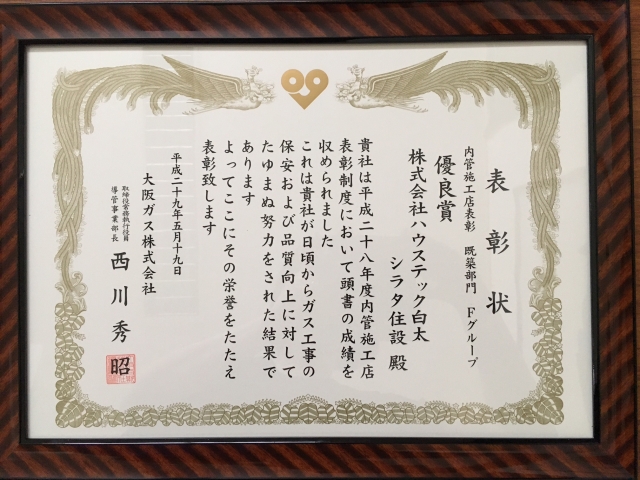 表彰状
内管施工店表彰　既築部門　Fグループ
優良賞
株式会社ハウステック白太
シラタ住設　殿
貴社は平成二十八年度内管施工店
表彰制度において頭書の成績を
収められました
これは貴社が日頃からガス工事の
保安および品質向上に対して
たゆまぬ努力をされた結果で
あります
よってここにその栄誉をたたえ
表彰致します
平成二十九年五月十九日
大阪ガス株式会社
取締役常務執行役員
導管事業部長
西川秀昭